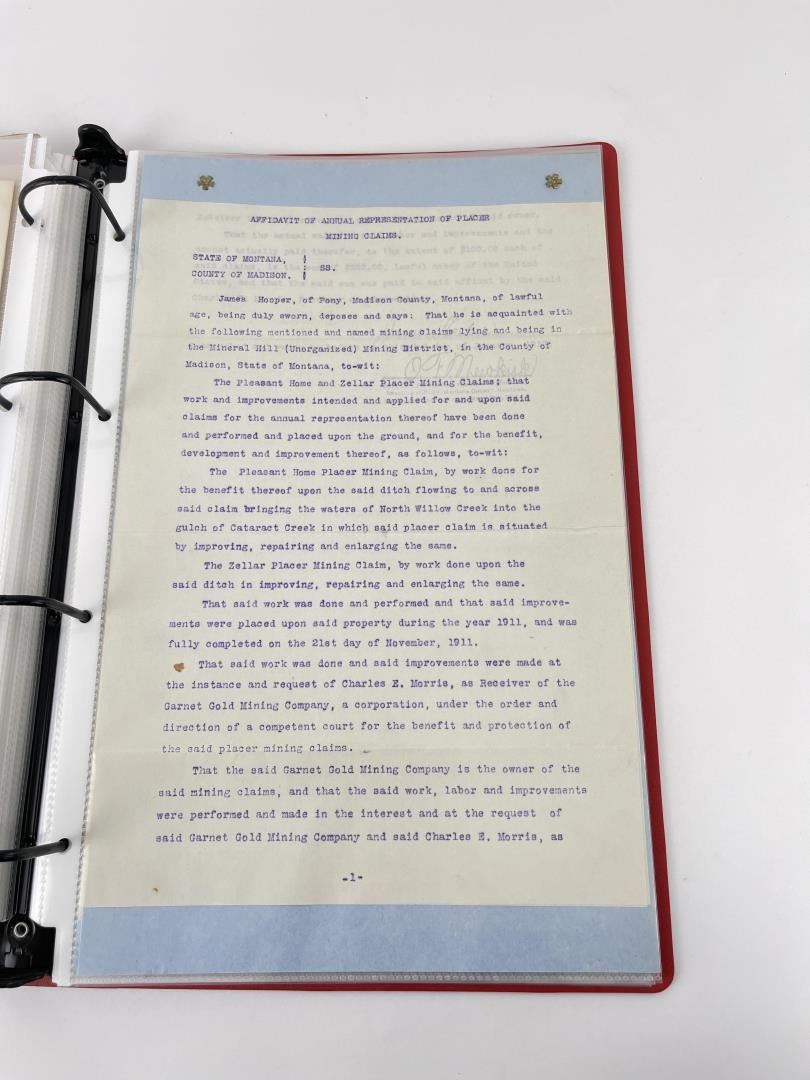 AFFIDAVIT OF ANNUAL REPRESENTATION OF PLACER
MINING CLAIMS.
STATE OF MONTANA, :
: SS.
COUNTY OF MADISON. :
James Hooper, of Pony, Madison County, Montana, of lawful
age, being duly sworn, deposes and says: That he is acquainted with
the following mentioned and named mining claims lying and being in
the Mineral Hill (Unorganized) Mining District, in the County of
Madison, State of Montana, to-wit:
The Pleasant Home and Zellar Placer Mining Claims; that
work and improvements intended and applied for and upon said
claims for the annual representation thereof have been done
and performed and placed upon the ground, and for the benefit,
development and improvement thereof, as follows, to-wit:
The Pleasant Home Placer Mining Claim, by work done for
the benefit thereof upon the said ditch flowing to and across
said claim bringing the waters of North Willow Creek into the
gulch of Cataract Creek in which said placer claim is situated
by improving, repairing and enlarging the same.
The Zellar Placer Mining Claim, by work done upon the
said ditch in improving, repairing and enlarging the same.
That said work was done and performed and that said improve-
ments were placed upon said property during the year 1911, and was
fully completed on the 21st day of November, 1911.
That said work was done and said improvements were made at
the instance and request of Charles E. Morris, as Receiver of the
Garnet Gold Mining Company, a corporation, under the order and
direction of a competent court for the benefit and protection of
the said placer mining claims.
That the said Garnet Gold Mining Company is the owner of the
said mining claims, and that the said work, labor and improvements
were performed and made in the interest and at the request of
said Garnet Gold Mining Company and said Charles E. Morris, as
-1-